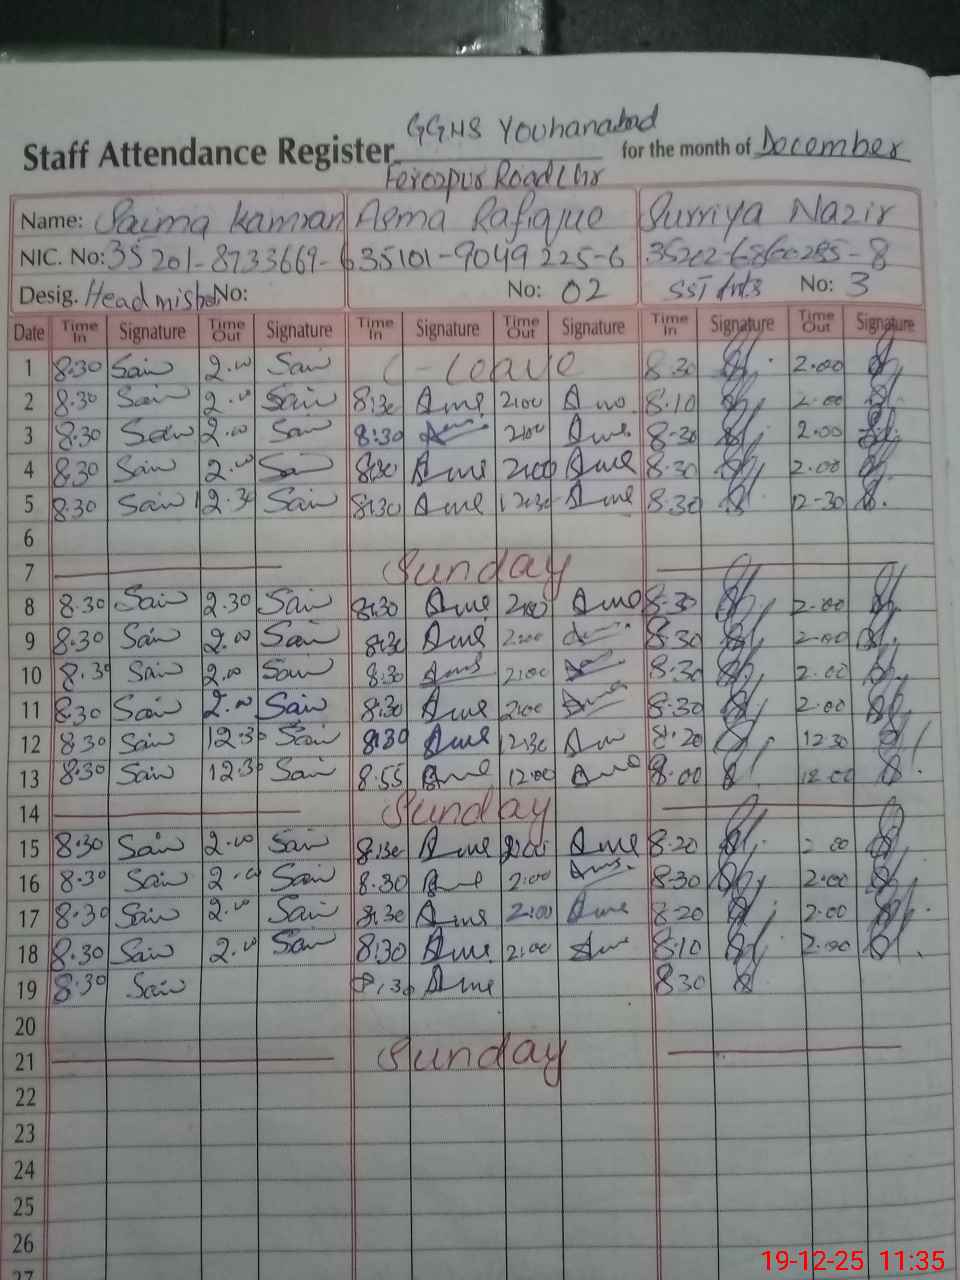 GGHS Youhanabad
Staff Attendance Register for the month of December
Ferozpur Road Lhr
Name: Saima Kamran Asma Rafique Surriya Nazir
NIC. No: 35201-8733669-6 35101-9049225-6 35202-6860285-8
Desig. Head mis No: No: 02 SST No: 3
Date Time In Signature Time Out Signature Time In Signature Time Out Signature Time In Signature Time Out Signature
1 8.30 Sai 2.00 Sai C-Leave 8.30 2.00
2 8.30 Sai 2.00 Sai 8:30 Ame 2:00 Ame 8.10 2.00
3 8.30 Sai 2.00 Sai 8:30 Ame 2:00 Ame 8.30 2.00
4 8.30 Sai 2.00 Sai 8:30 Ame 2:00 Ame 8.30 2.00
5 8.30 Sai 12.30 Sai 8:30 Ame 12:30 Ame 8.30 12-30
6
7 Sunday
8 8.30 Sai 2.30 Sai 8:30 Ame 2:00 Ame 8.30 2.00
9 8.30 Sai 2.00 Sai 8:30 Ame 2:00 8.30 2.00
10 8.30 Sai 2.00 Sai 8:30 Ame 2:00 8.30 2.00
11 8.30 Sai 2.00 Sai 8:30 Ame 2:00 Ame 8.30 2.00
12 8.30 Sai 12.30 Sai 8:30 Ame 12:30 Ame 8.20 12.30
13 8.30 Sai 12.30 Sai 8:55 Ame 12:00 Ame 8.00 12.00
14 Sunday
15 8.30 Sai 2.00 Sai 8:30 Ame 2:00 Ame 8.20 2.00
16 8.30 Sai 2.00 Sai 8.30 Ame 2:00 Ame 8.30 2.00
17 8.30 Sai 2.00 Sai 8:30 Ame 2:00 Ame 8.20 2.00
18 8.30 Sai 2.00 Sai 8:30 Ame 2:00 Ame 8.10 2.00
19 8.30 Sai 8:30 Ame 8.30
20
21 Sunday
22
23
24
25
26
27
19-12-25 11:35